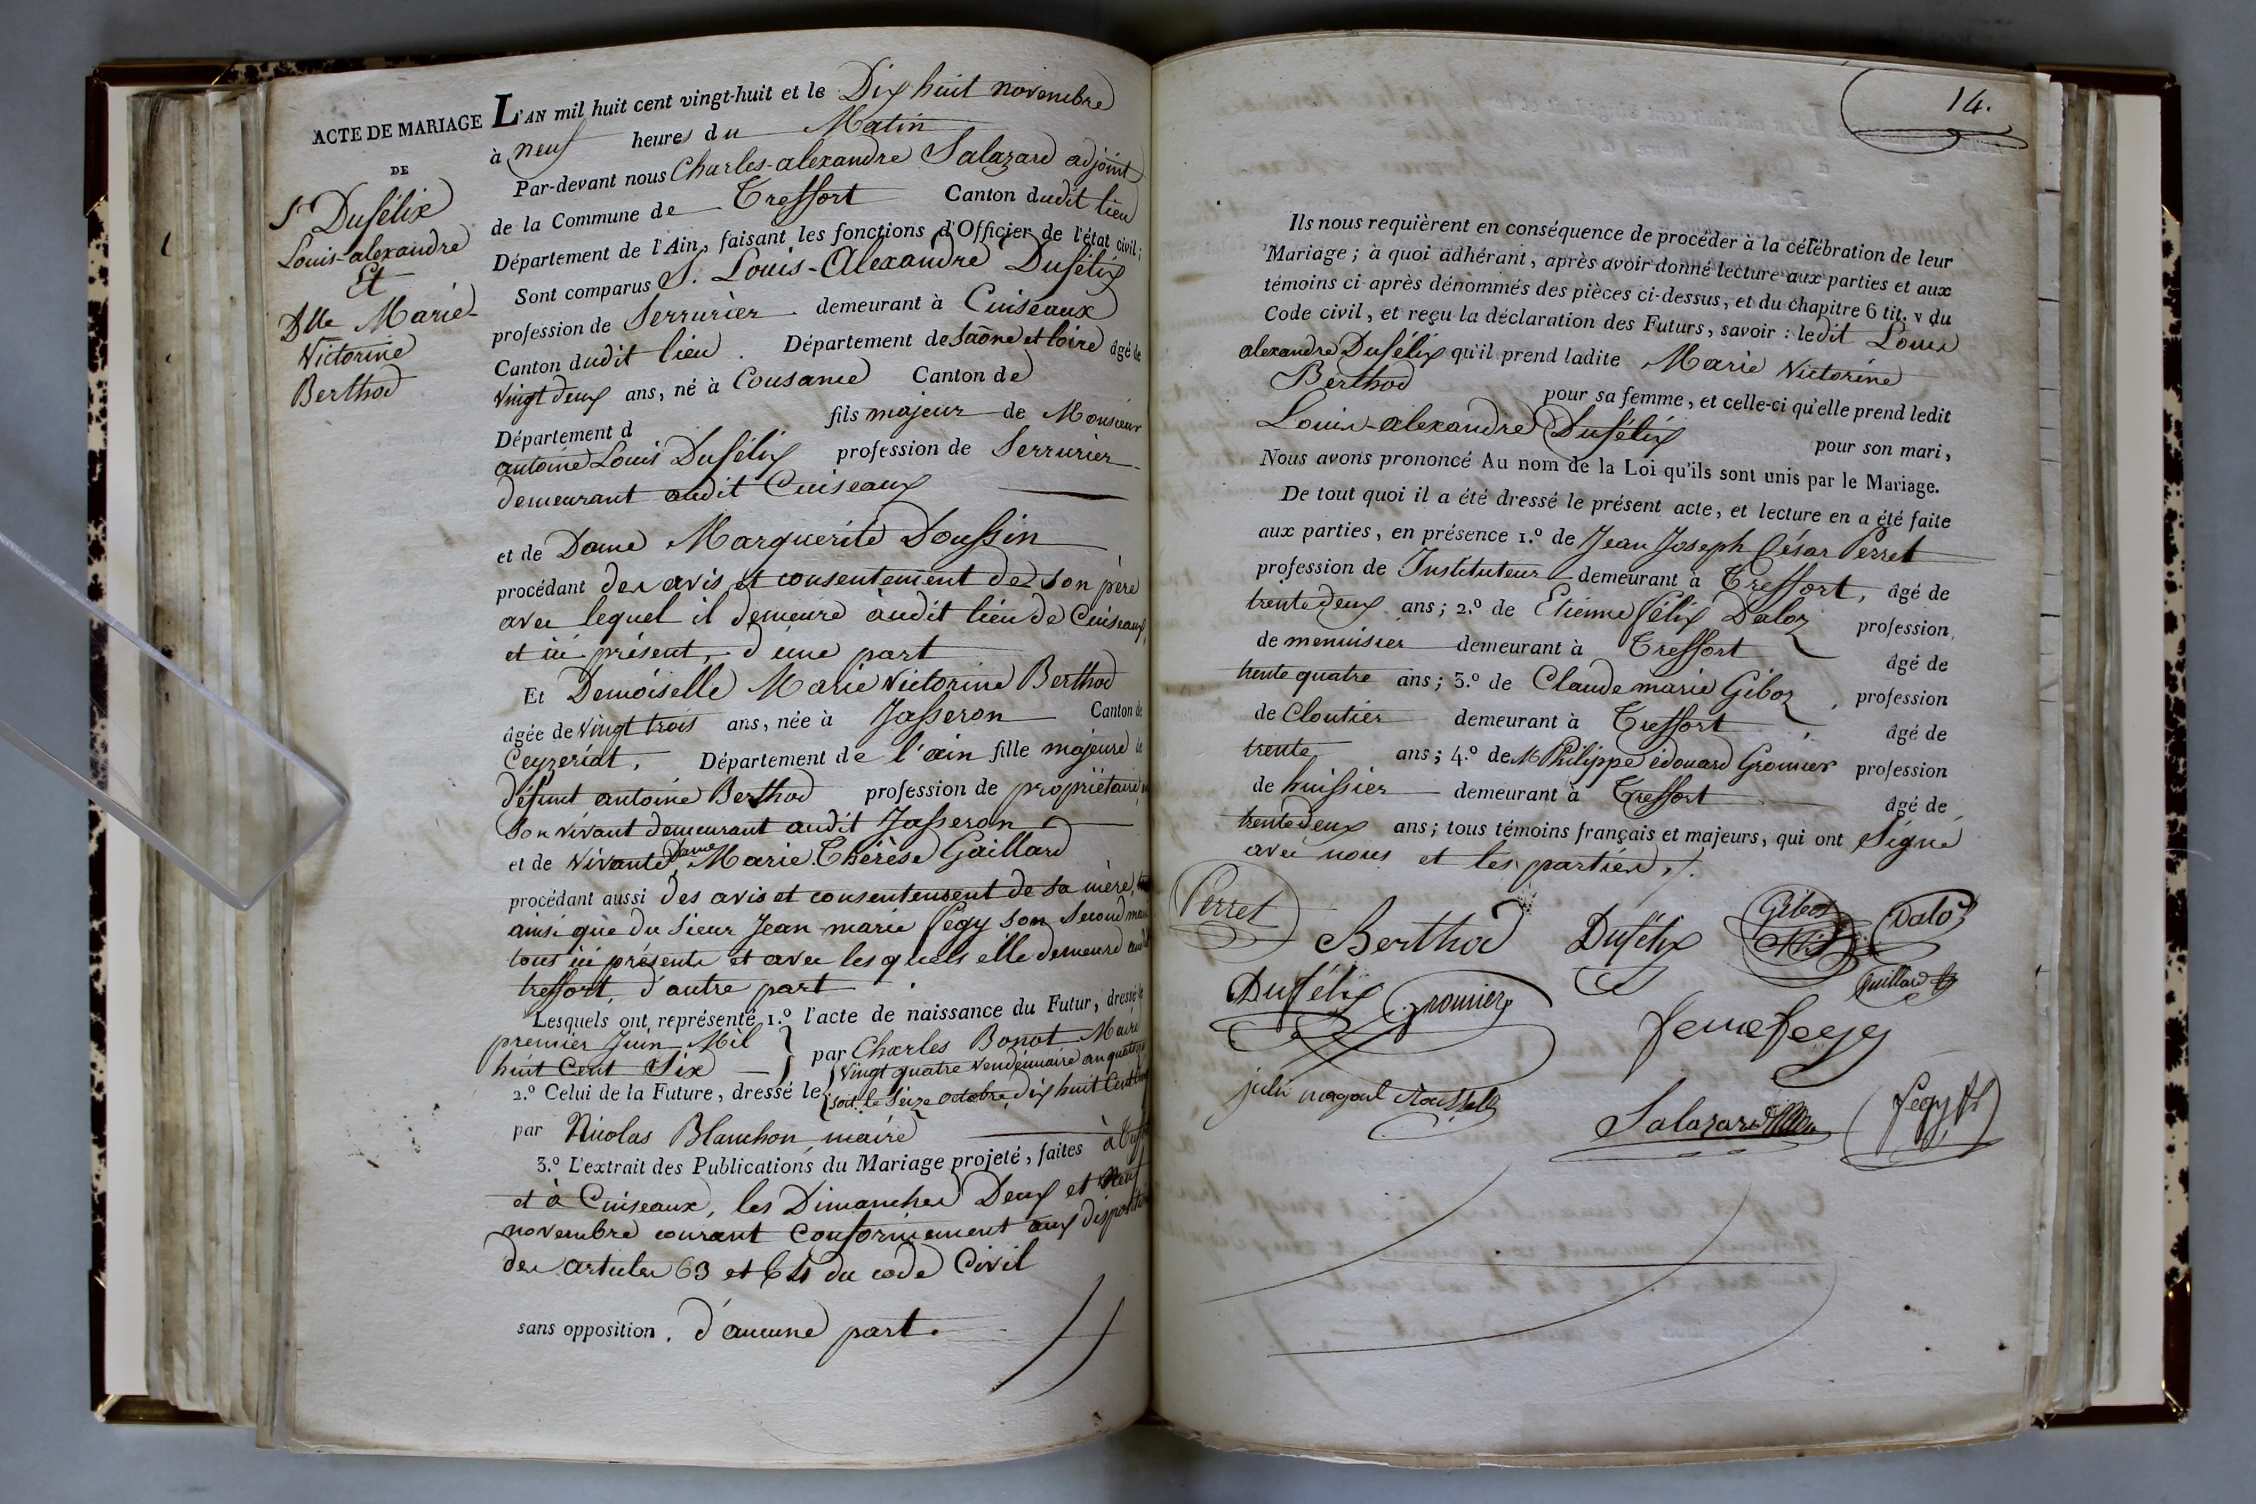 ACTE DE MARIAGE
DE
Sr Dufélix
Louis-alexandre
Et
Dlle Marie-
Victorine
Berthod
L'AN mil huit cent vingt-huit et le Dix huit novembre
à neuf heures du Matin
Par-devant nous Charles-alexandre Salazard adjoint
de la Commune de Treffort Canton dudit lieu
Département de l'Ain, faisant les fonctions d'Officier de l'état civil;
Sont comparus S. Louis-Alexandre Dufélix
profession de Serrurier demeurant à Cuiseaux
Canton dudit lieu. Département de Saône et Loire âgé de
vingt deux ans, né à Cousance Canton de
Département d fils majeur de Monsieur
antoine Louis Dufélix profession de Serrurier
demeurant audit Cuiseaux
et de Dame Marguerite Doussin
procédant des avis et consentement de son père
avec lequel il demeure audit lieu de Cuiseaux,
et ici présent, d'une part
Et Demoiselle Marie Victorine Berthod
âgée de vingt trois ans, née à Jasseron Canton de
Ceyzeriat, Département de l'ain fille majeure de
défunt antoine Berthod profession de propriétaire en
son vivant demeurant audit Jasseron
et de vivante Dame Marie Thérèse Gaillard
procédant aussi des avis et consentement de sa mère,
ainsi que du sieur Jean marie Fégy son second mari
tous ici présents et avec lesquels elle demeure audit
treffort, d'autre part
Lesquels ont représenté 1.º l'acte de naissance du Futur, dressé le
premier Juin Mil
huit Cent Six par Charles Bonot Maire
2.º Celui de la Future, dressé le vingt quatre vendémiaire an quatorze
soit le Seize octobre dix huit Cent cinq
par Nicolas Blanchon maire
3.º L'extrait des Publications du Mariage projeté, faites à Treffort
et à Cuiseaux, les Dimanches Deux et Neuf
novembre courant conformément aux dispositions
des articles 63 et 64 du code Civil
sans opposition, d'aucune part.
14.
Ils nous requièrent en conséquence de procéder à la célébration de leur
Mariage; à quoi adhérant, après avoir donné lecture aux parties et aux
témoins ci-après dénommés des pièces ci-dessus, et du chapitre 6 tit. v du
Code civil, et reçu la déclaration des Futurs, savoir: ledit Louis
alexandre Dufélix qu'il prend ladite Marie Victorine
Berthod pour sa femme, et celle-ci qu'elle prend ledit
Louis-alexandre Dufélix pour son mari,
Nous avons prononcé Au nom de la Loi qu'ils sont unis par le Mariage.
De tout quoi il a été dressé le présent acte, et lecture en a été faite
aux parties, en présence 1.º de Jean Joseph César Perret
profession de Instituteur demeurant à Treffort, âgé de
trente deux ans; 2.º de Etienne Félix Daloz profession
de menuisier demeurant à Treffort âgé de
trente quatre ans; 3.º de Claude marie Giboz, profession
de Cloutier demeurant à Treffort âgé de
trente ans; 4.º de M Philippe édouard Gromier profession
de huissier demeurant à Treffort âgé de
trente deux ans; tous témoins français et majeurs, qui ont Signé
avec nous et les parties.
Perret Berthod Dufélix Giboz Daloz
Dufélix Gromier Gaillard
feme fegy
Salazard
fegy